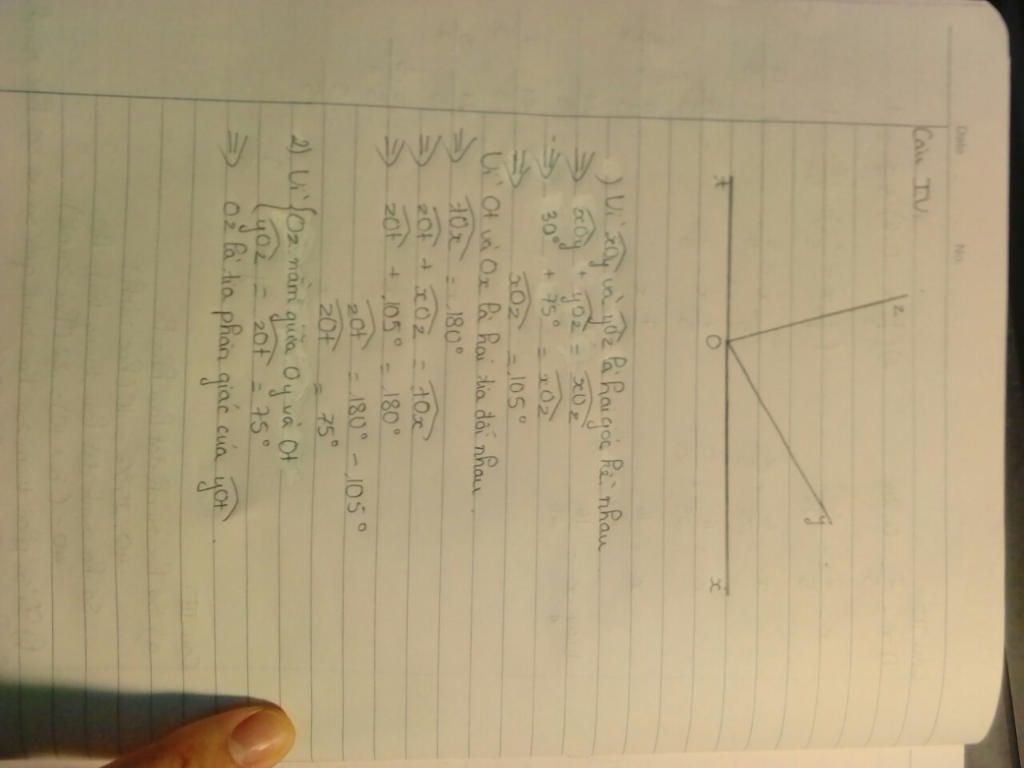 Date No.
Câu IV.
z
y
t O x
1) Vì xOy và yOz là hai góc kề nhau
=> xOy + yOz = xOz
=> 30° + 75° = xOz
=> xOz = 105°
Vì Ot và Ox là hai tia đối nhau.
=> tOx = 180°
=> zOt + xOz = tOx
=> zOt + 105° = 180°
zOt = 180° - 105°
zOt = 75°
2) Vì { Oz nằm giữa Oy và Ot
yOz = zOt = 75°
=> Oz là tia phân giác của yOt.